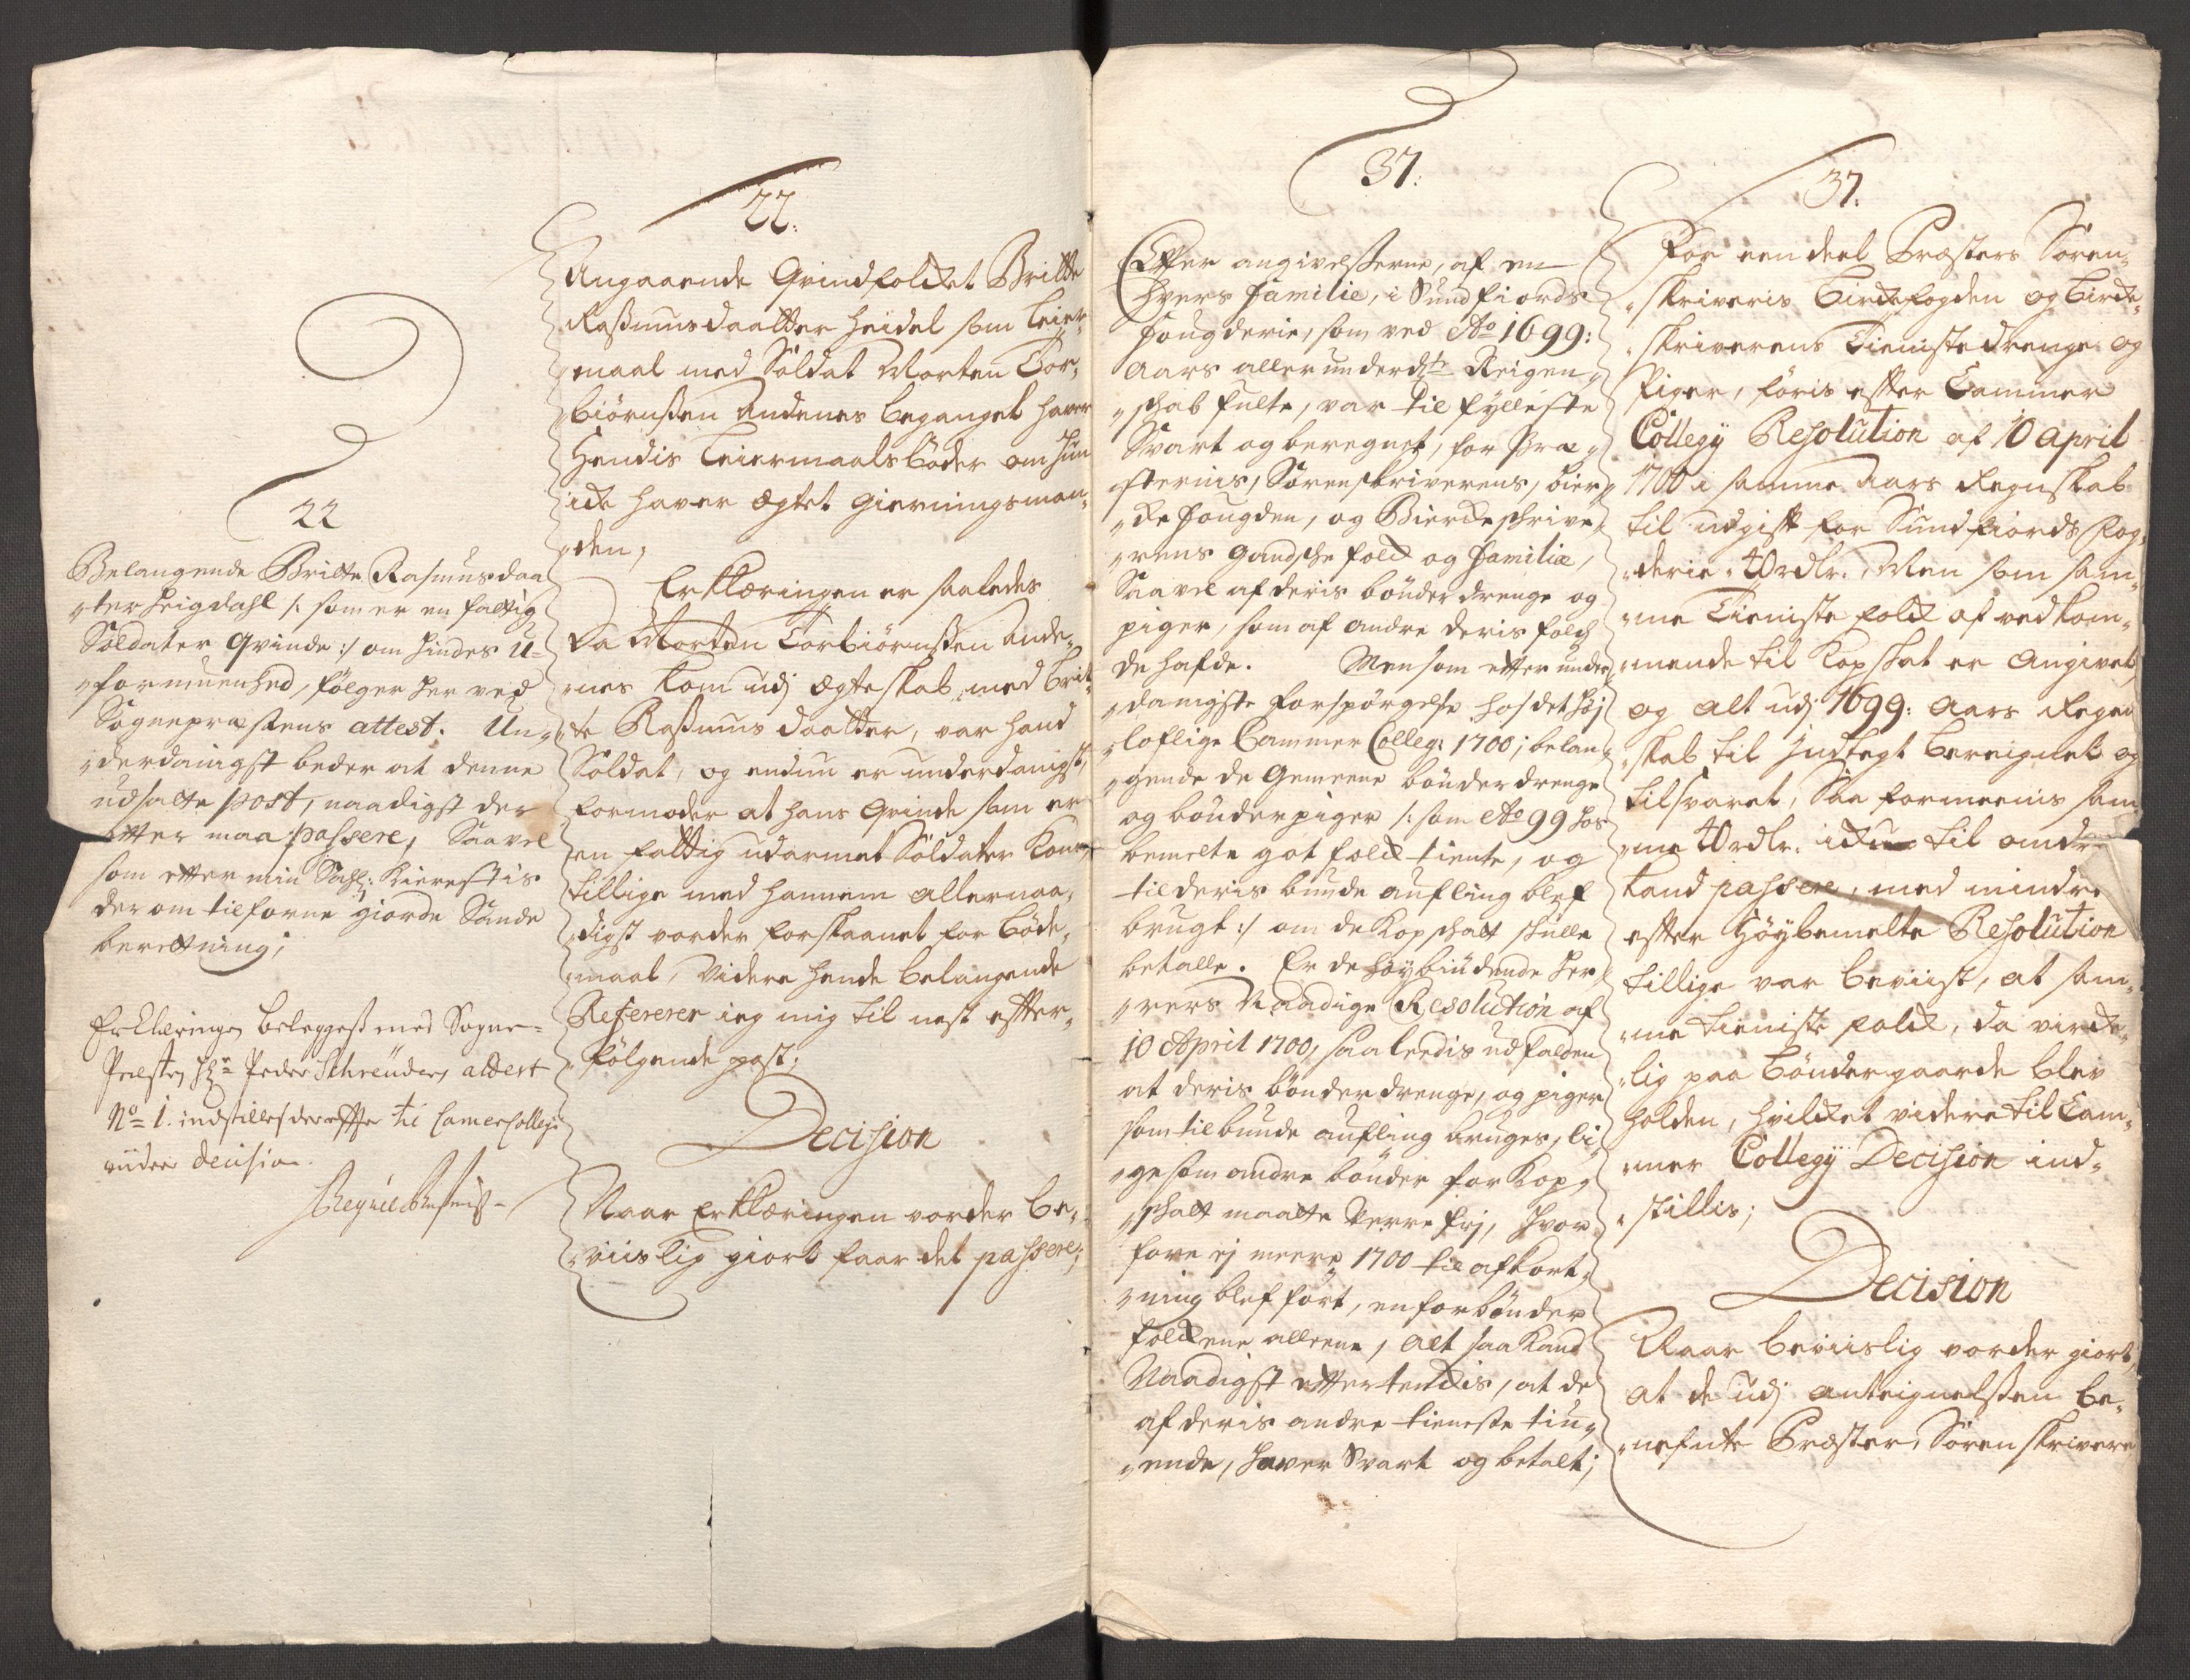 22
Belangende Britte Rasmusdaa
"ter Heigdahl /: som er en fattig
Soldater qvinde :/ om hindes U-
"formuenhed, følger her ved
Sognepræstens attest. Un-
"derdanigst beder at denne
udsatte post, naadigst der
etter maa passere, Saavel
som etter min Sahl: Kierestis
der om tilforne giorde Sande
berettning;
Erklæringen beleggest med Sogne-
Præsten Hr Peder Schreuder attest
No 1. indstilles derefter til Camer Colleg:
videre decision.
22.
Angaaende Qvindfolket Britte
Rasmusdaatter Heidel som Leier-
"maal med Soldat Morten Tor-
"biørnssen Andenes beganget haver
Hendis Leiermaals bøder om hun
icke haver ægtet gierningsman-
"den,
Erklæringen er saaledes
Da Morten Torbiørnssen Ande-
"nes kom udj ægteskab med Brit-
"te Rasmus daatter, var hand
Soldat, og endnu er underdanigst,
formoder at hans Qvinde som er
en fattig udarmet Soldater Kone,
tillige med hannem allernaa-
"digst vorder forskaanet for bøde-
"maal, Videre hende belangende
Refererer ieg mig til nest effter-
"følgende post;
Decision
Naar Erklæringen vorder be-
"viislig giort faar det passere;
37.
Efter angivelsserne, af en
hvers familie, i Sundfiords
fougderie, som ved Ao 1699:
Aars allerunderdste Reigen-
"schab fulte, var til fylleste
Svart og beregnet, for Præ-
sternis, Sorenskriverens, bier-
"ke fougden, og Bierckeschrive-
"rens gandsche folck og familie,
Saavel af deris bønder drenge og
piger, som af andre deris folch
de hafde. Men som etter under
"danigste forspørgelse hos det høj
"loflige Cammer Colleg: 1700; belan-
"gende de Gemeene bønder drenge
og bønder piger /: som Ao 99 hos
bemelte got folck tiente, og
til deris bunde aufling blef
brugt :/ om de Kopschatt skulle
betalle. Er de høybiudende Her-
"rers Naadige Resolution af
10 April 1700, saaleedis udfalden
at deris bønderdrenge, og piger
som til bunde aufling bruges, li-
"ge som andre bønder for Kop-
"schatt maatte Verre frj, hvor
fore ej meere 1700 til afkort-
"ning blef ført, en for bønder
folckene alleene, alt saa kand
Naadigst ettertenckis, at de
af deris andre tieneste tiu-
"ende, haver Svart og betalt;
37.
For een deel Præsters Soren-
"skriveris Birckefogden og Bircke-
"skriverens Tieniste drenge og
Piger, føris effter Cammer
Collegij Resolution af 10 april
1700 i samme Aars Regnskab
til udgift for Sundfiords Fog-
"derie 40 rdlr. Men som sam-
"me Tieniste folck af vedkom-
"mende til Kopskat er Angivet
og alt udj 1699: Aars Regen
"skab til Indtegt bereignet og
tilsvaret, Saa formeenis sam
"me 40 rdlr. icke til andre
kand passere, med mindre
effter Høybemelte Resolution
tillige var beviist, at sam-
"me tieniste folck, da virke-
"lig paa Bøndergaarde blev
holden, hvilcket videre til Cam-
"mer Collegij Decision ind-
"stillis;
Decision
Naar beviislig vorder giort,
at de udj anteignelssen be-
"nefnte Præster, Sorenskrivere